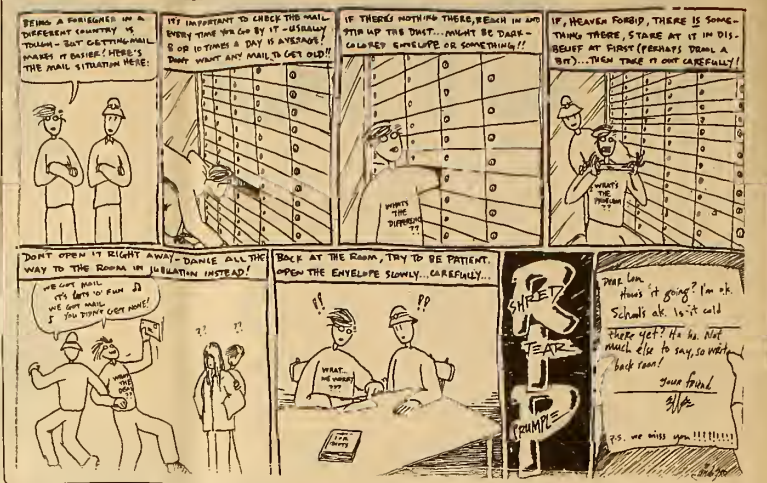 BEING A FOREIGNER IN A
DIFFERENT COUNTRY IS
TOUGH - BUT GETTING MAIL
MAKES IT EASIER! HERE'S
THE MAIL SITUATION HERE:
IT'S IMPORTANT TO CHECK THE MAIL
EVERY TIME YOU GO BY IT - USUALLY
8 OR 10 TIMES A DAY IS AVERAGE!
DON'T WANT ANY MAIL TO GET OLD!!
IF THERE'S NOTHING THERE, REACH IN AND
STIR UP THE DUST... MIGHT BE DARK-
COLORED ENVELOPE OR SOMETHING!!
WHAT'S
THE
DIFFERENCE
??
IF, HEAVEN FORBID, THERE IS SOME-
THING THERE, STARE AT IT IN DIS-
BELIEF AT FIRST (PERHAPS DROOL A
BIT)... THEN TAKE IT OUT CAREFULLY!
WHAT'S
THE
PROBLEM
??
DON'T OPEN IT RIGHT AWAY - DANCE ALL THE
WAY TO THE ROOM IN JUBILATION INSTEAD!
WE GOT MAIL
IT'S LOTS 'O' FUN ♫
WE GOT MAIL
♪ YOU DIDN'T GET NONE!
WHAT'S
THE
DEAL
??
?? ??
BACK AT THE ROOM, TRY TO BE PATIENT.
OPEN THE ENVELOPE SLOWLY... CAREFULLY...
!! !!
WHAT...
ME WORRY?
???
FOR
RIP
SHRED
TEAR
CRUMPLE
Dear Lon,
How's it going? I'm o.k.
School's o.k. Is it cold
there yet? Ha ha. Not
much else to say, so write
back soon!
Your friend
P.S. we miss you!!!!!!!!!